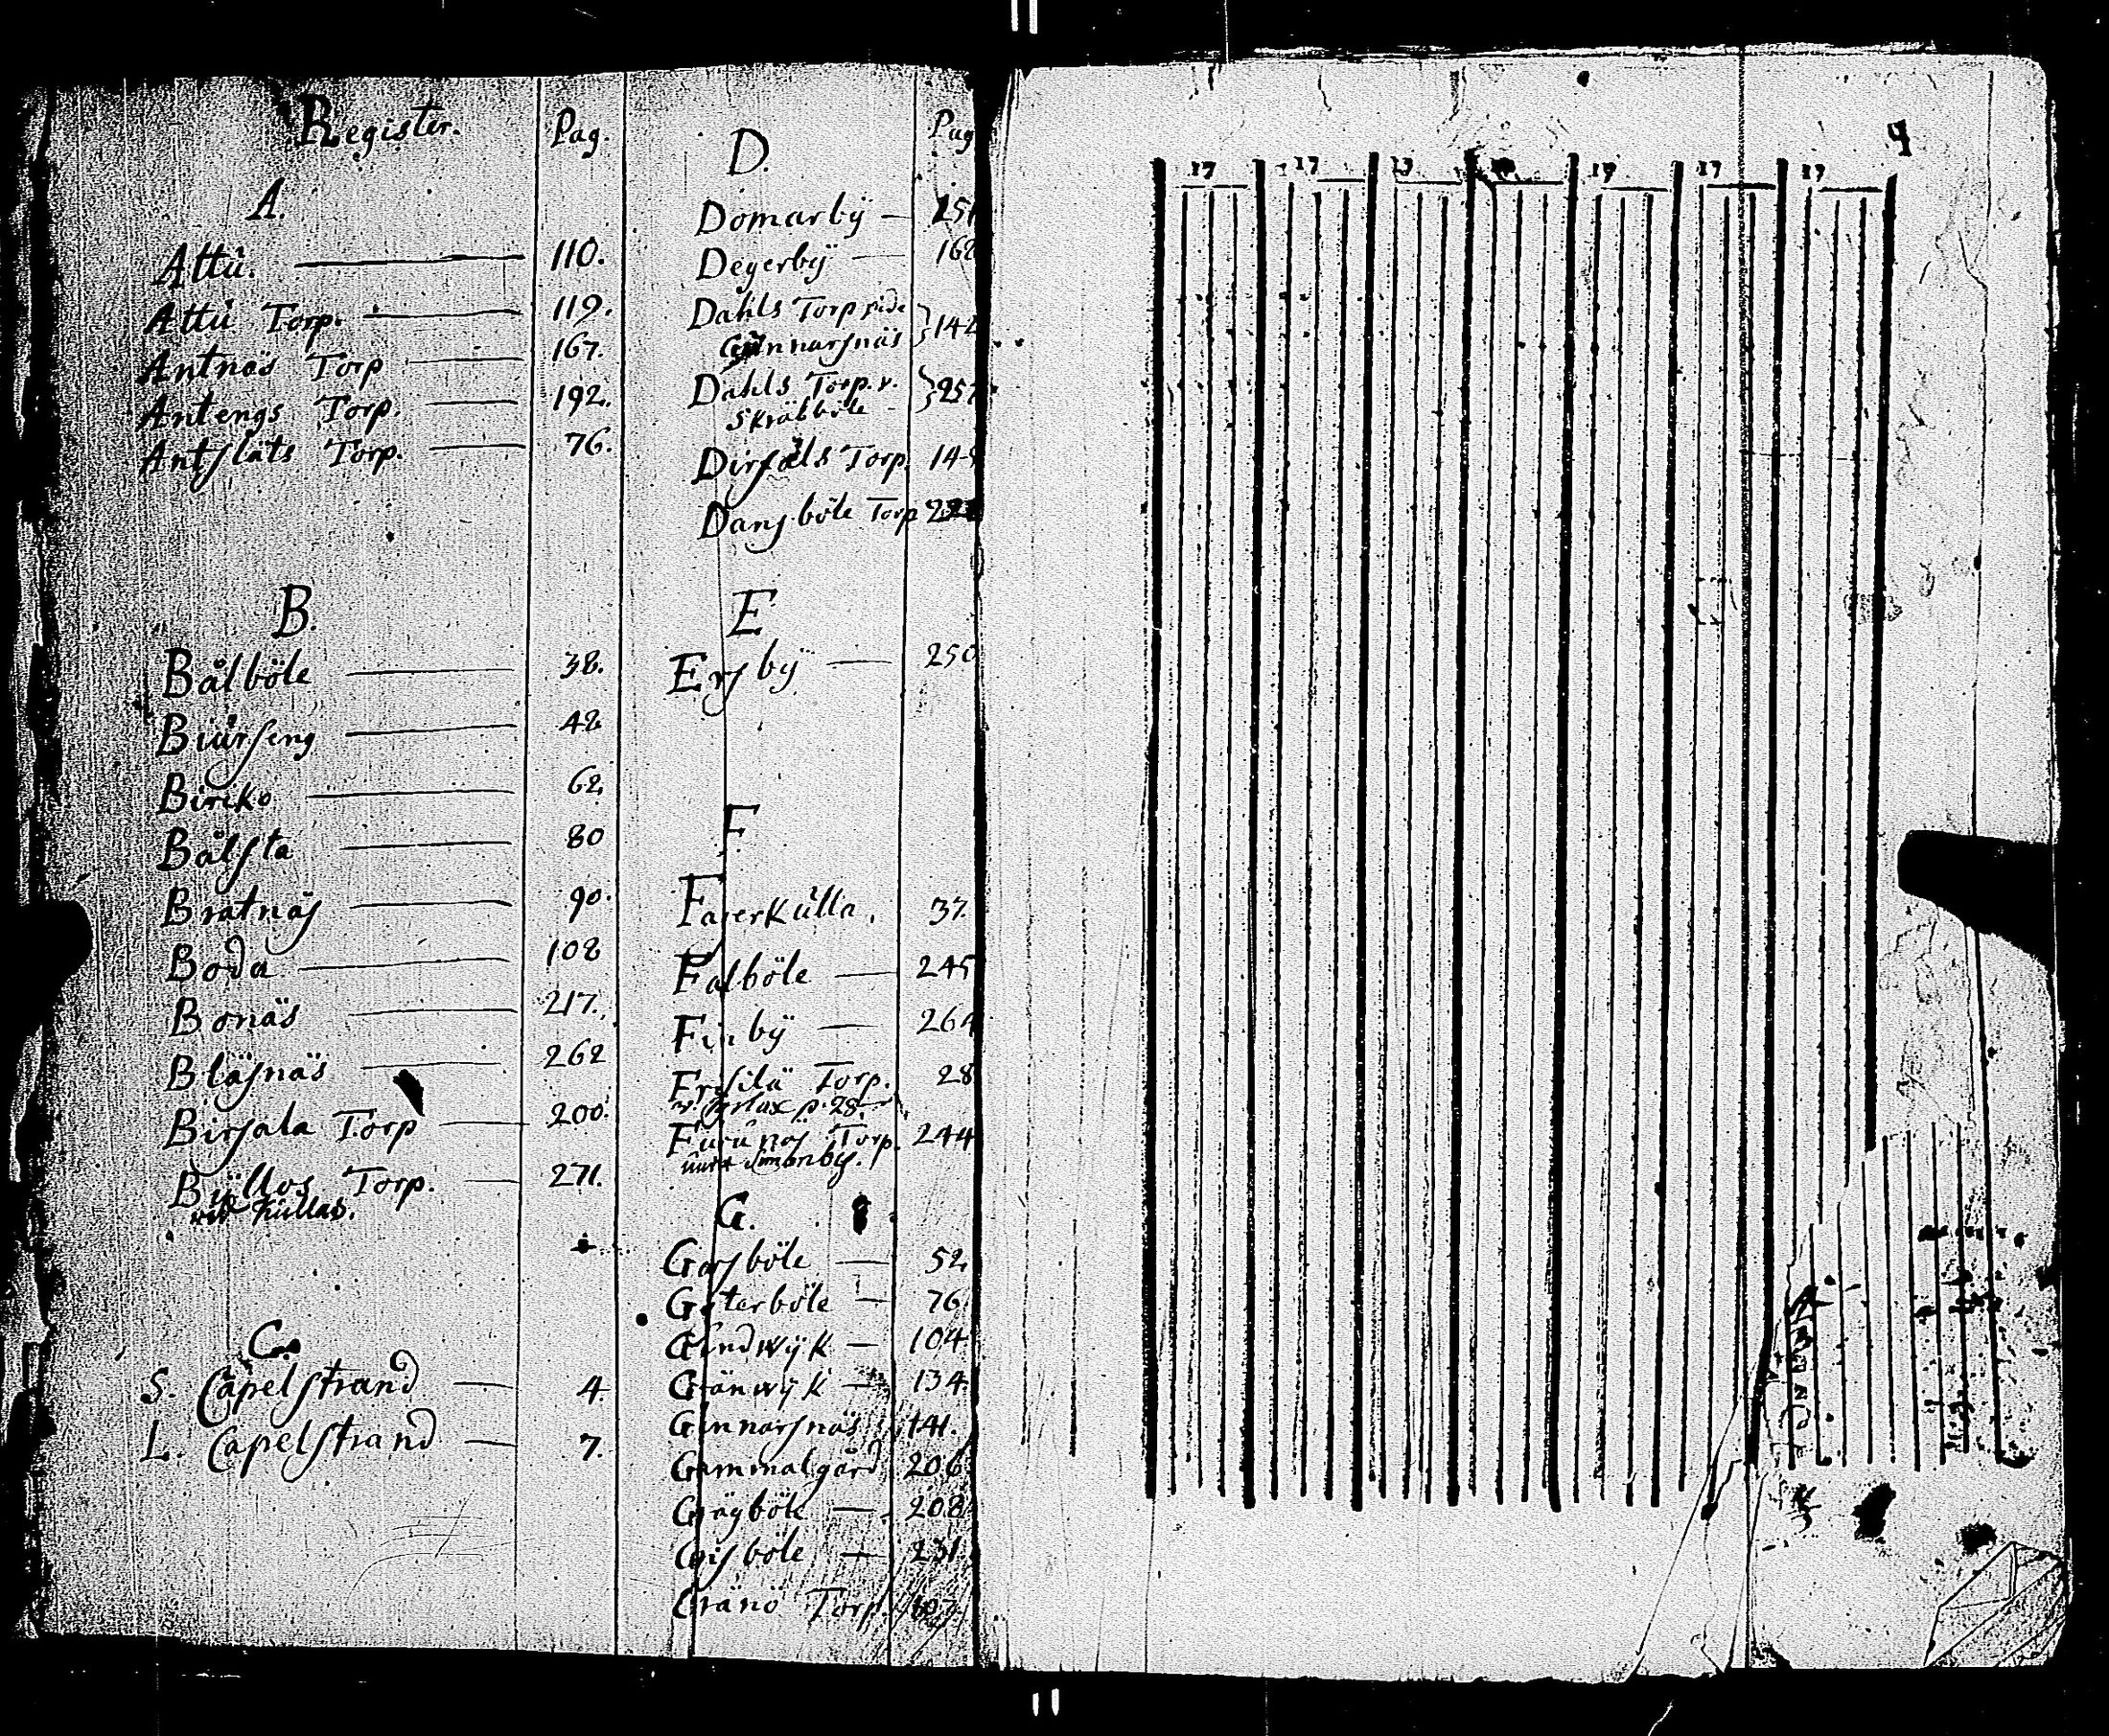 Register. Pag.
A.
Attû. 110.
Attû Torp. 119.
Antnäs Torp 167.
Antengs Torp. 192.
Antsläts Torp. 76.
B.
Bålböle 38.
Biürseng 42
Biriko 62,
Bålsta 80
Bratnäs 90.
Boda 108
Bonäs 217.
Bläsnäs 262
Birsala Torp 200.
Büllos Torp. 271.
Killas.
C.
S. Capelstrand 4
L. Capelstrand 7.
D. Pag
Domarbÿ 251
Degerbÿ 168
Dahls Torp
Gunnarsnäs 142
Dahls Torp. v.
Skräbböle 257
Torp. 14
Dansböle Torp
E
Ersbÿ 250
F
Fajerkulla. 37.
Falböle 245
Finbÿ 264
Torp. 28
p. 28.
Furunäs Torp. 244
Simonby.
G.
Garsböle 52,
Gÿterböle 76.
Gundwÿk 104.
Gränwÿk 134.
Gunnarsnäs 141.
Gammalgård 206
Grägböle 208
Gisböle 231
Gränö Torp. 107.
4
17 17 17 17 17 17